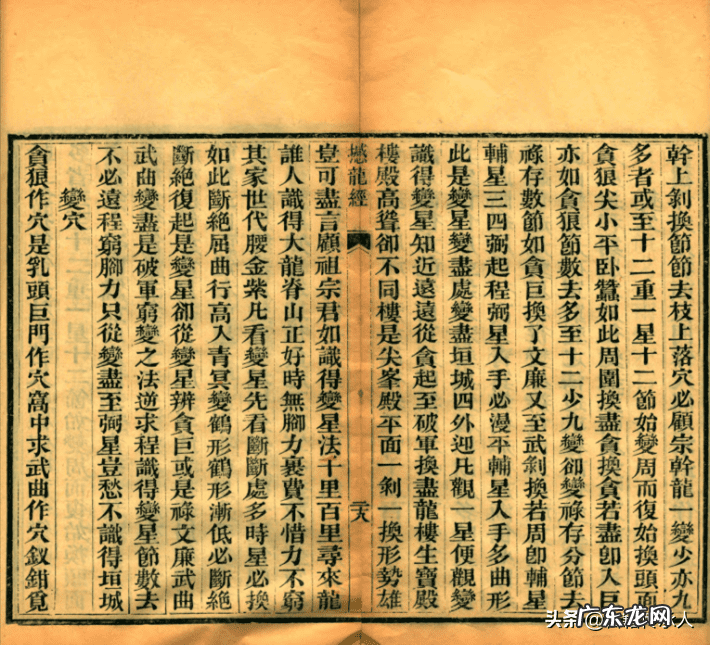 幹上剝換節節去枝上落穴必顧宗幹龍一變少亦九
多者或至十二重一星十二節始變周而復始換頭面
貪狼尖小平卧蠶如此周圍換盡貪換貪若盡卽入巨
亦如貪狼節數去多至十二少九變卻變祿存分節去
祿存數節如貪巨換了文廉又至武剝換若周卽輔星
輔星三四弼起程弼星入手必漫平輔星入手多曲形
此是變星變盡處變盡垣城四外迎凡觀一星便觀變
識得變星知近遠遠從貪起至破軍換盡龍樓生寶殿
樓殿高聳卻不同樓是尖峯殿平面一剝一換形勢雄
撼龍經
二八
豈可盡言顧祖宗君如識得變星法千里百里尋來龍
誰人識得大龍脊山正好時無腳力裹費不惜力不窮
其家世代腰金紫凡看變星先看斷斷處多時星必換
如此斷絕屈曲行高入青冥變鶴形鶴形漸低必斷絕
斷絕復起是變星卻從變星辨貪巨或是祿文廉武曲
武曲變盡是破軍窮變之法逆求程識得變星節數去
不必遠程窮腳力只從變盡至弼星豈愁不識得垣城
變穴
貪狼作穴是乳頭巨門作穴窩中求武曲作穴釵鉗覓
头条
广东龙网
人